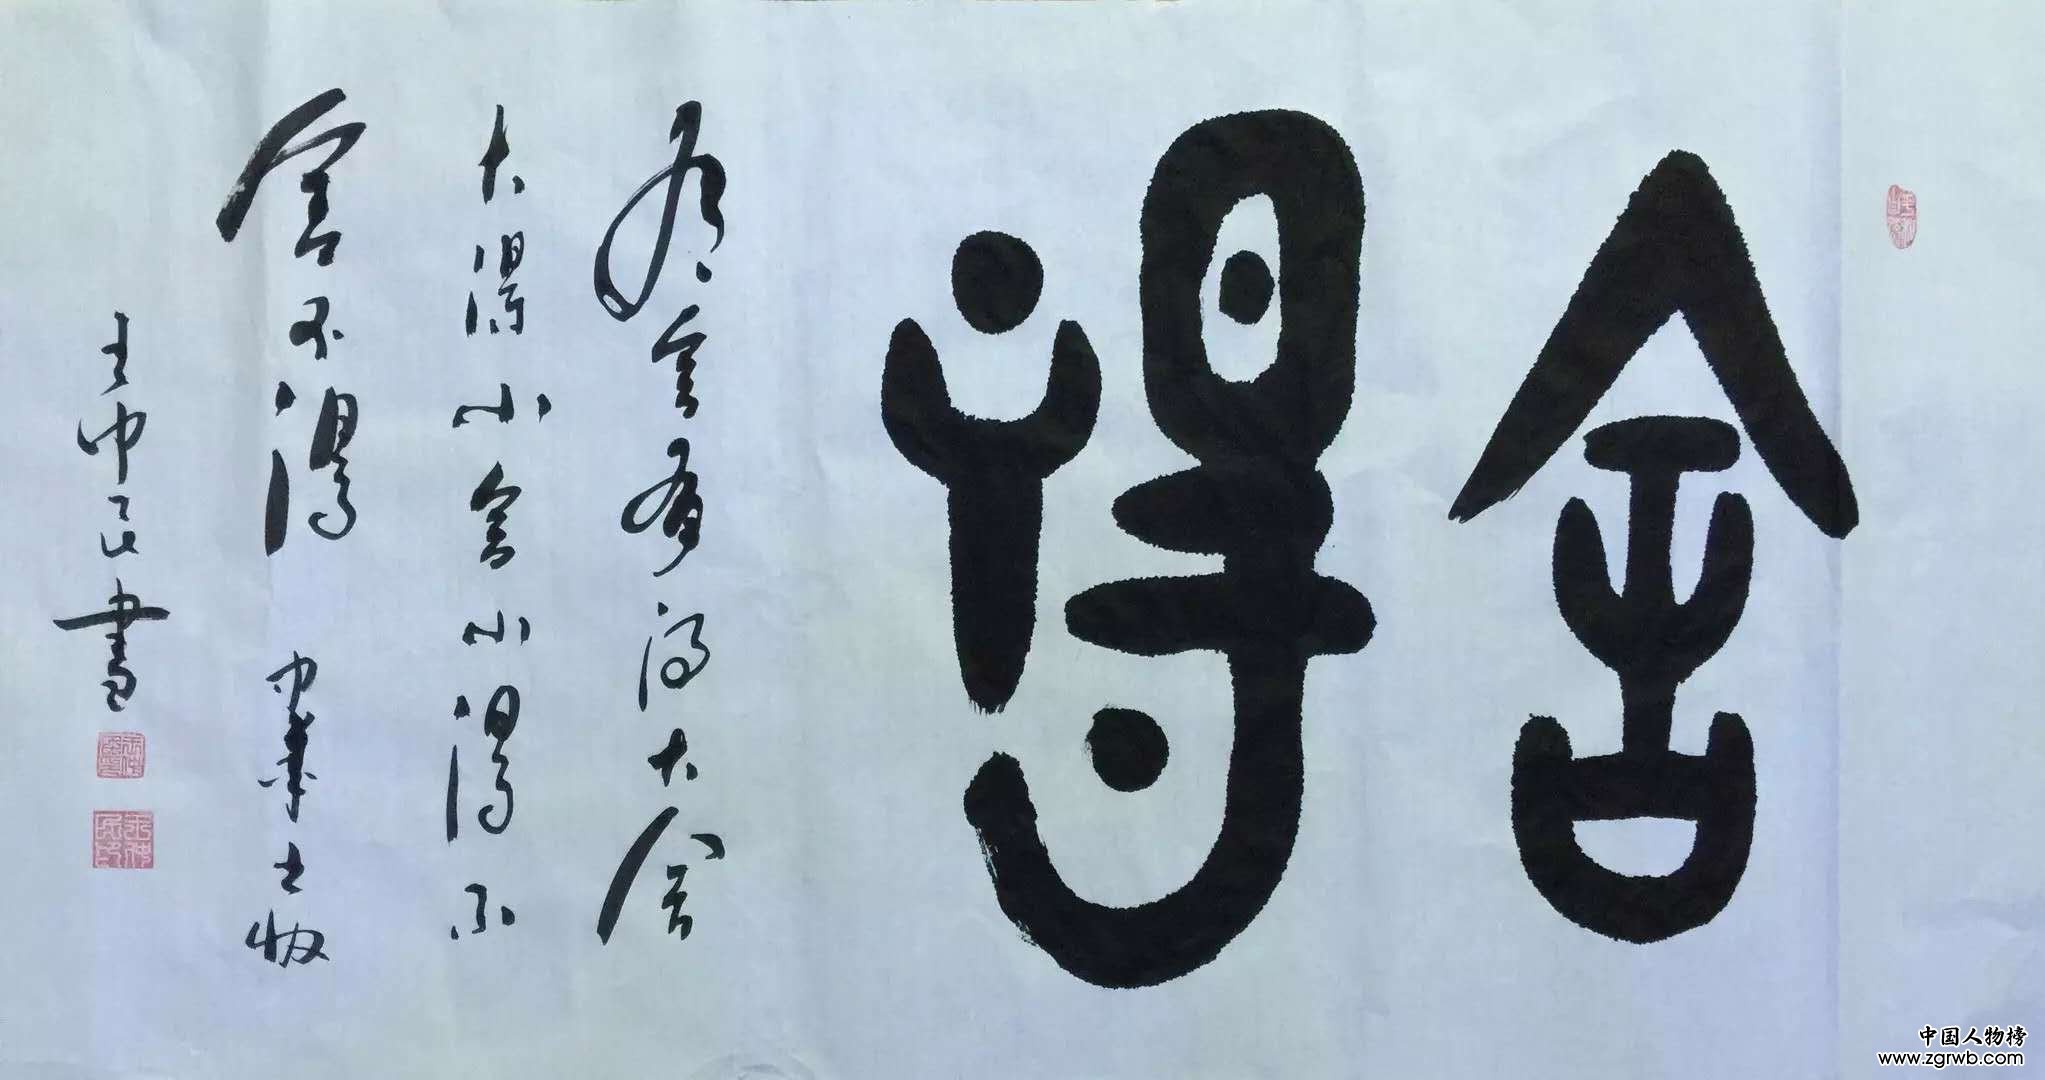 舍得
有舍有得大舍
大得小舍小得不
舍不得
王仲民書
中国人物榜
www.zgrwb.com